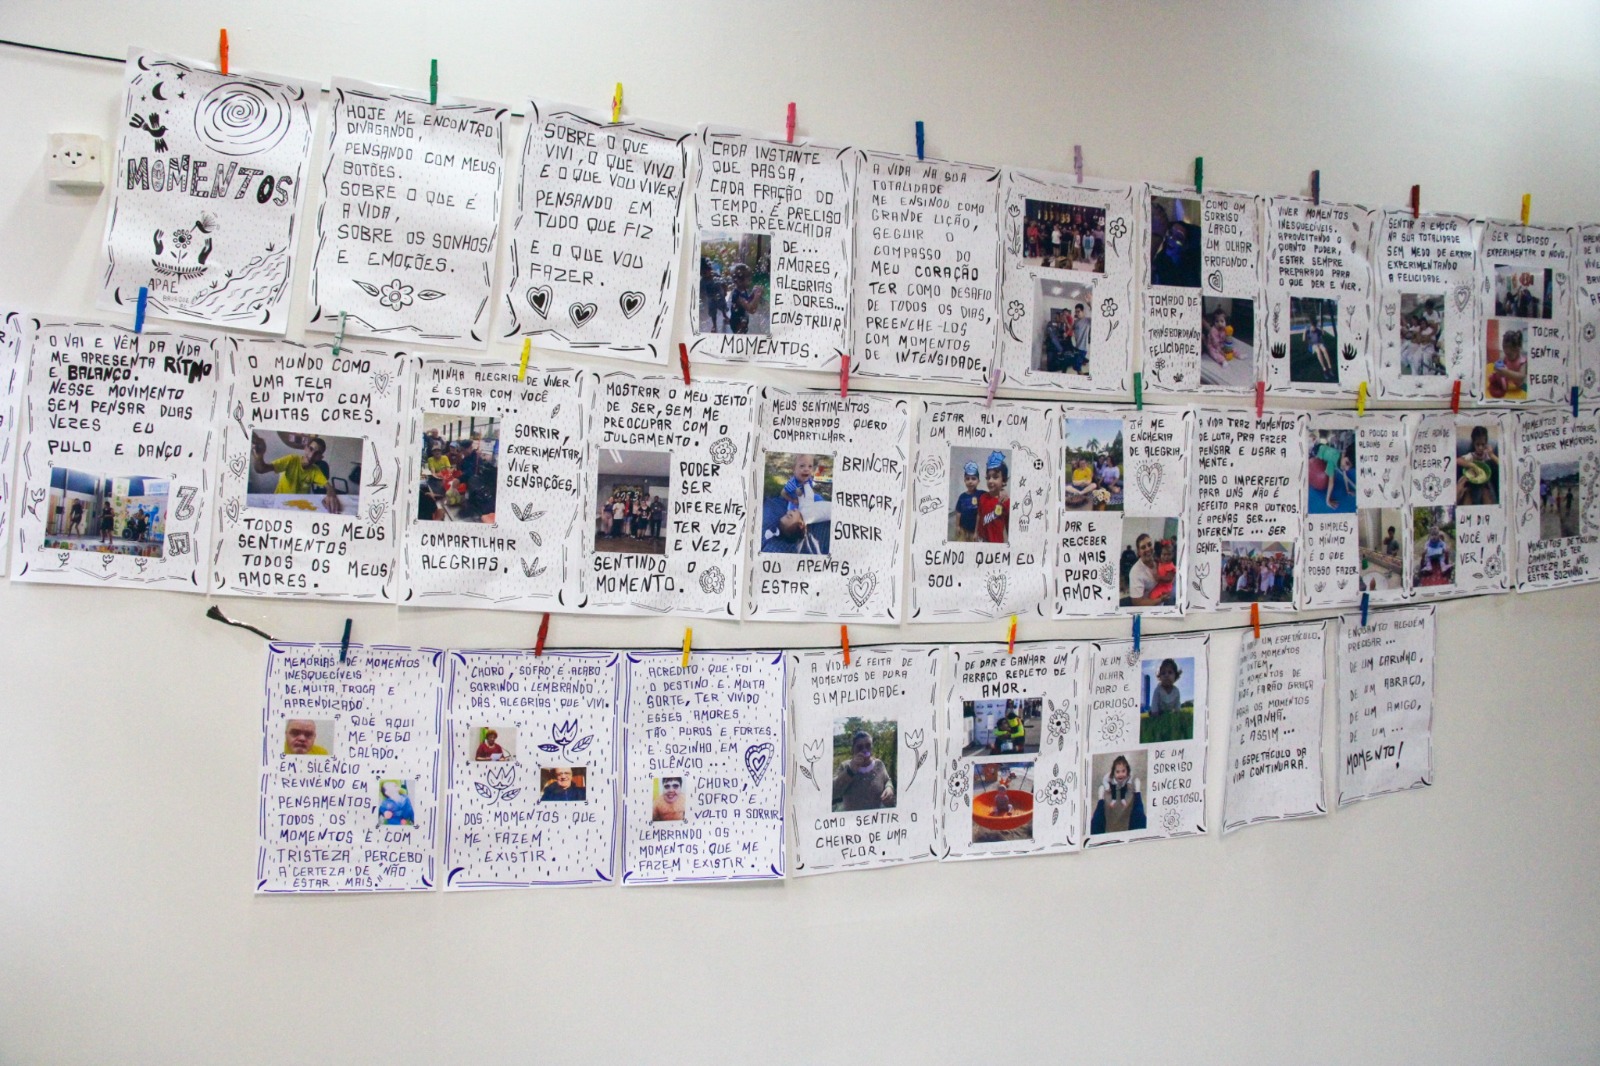 MOMENTOS
APAE
HOJE ME ENCONTRO
DIVAGANDO,
PENSANDO COM MEUS
BOTÕES.
SOBRE O QUE É
A VIDA,
SOBRE OS SONHOS
E EMOÇÕES.
SOBRE O QUE
VIVI, O QUE VIVO
E O QUE VOU VIVER,
PENSANDO EM
TUDO QUE FIZ
E O QUE VOU
FAZER.
CADA INSTANTE
QUE PASSA,
CADA FRAÇÃO DO
TEMPO, É PRECISO
SER PREENCHIDA
DE...
AMORES,
ALEGRIAS
E DORES...
CONSTRUIR
MOMENTOS.
A VIDA NA SUA
TOTALIDADE
ME ENSINOU COMO
GRANDE LIÇÃO,
SEGUIR O
COMPASSO DO
MEU CORAÇÃO
TER COMO DESAFIO
DE TODOS OS DIAS,
PREENCHE-LOS
COM MOMENTOS
DE INTENSIDADE.
COMO UM
SORRISO
LARGO,
UM OLHAR
PROFONDO.
TOMADO DE
AMOR,
TRANSBORDANDO
FELICIDADE.
VIVER MOMENTOS
INESQUECÍVEIS.
APROVEITANDO O
QUANTO PUDER,
ESTAR SEMPRE
PREPARADO PARA
O QUE DER E VIER.
SENTIR A EMOÇÃO
NA SUA TOTALIDADE
SEM MEDO DE ERRAR
EXPERIMENTANDO
A FELICIDADE.
SER CURIOSO,
EXPERIMENTAR O NOVO.
TOCAR,
SENTIR,
PEGAR,
O VAI E VÊM DA VIDA
ME APRESENTA RITMO
E BALANÇO.
NESSE MOVIMENTO
SEM PENSAR DUAS
VEZES EU
PULO E DANÇO.
O MUNDO COMO
UMA TELA
EU PINTO COM
MUITAS CORES.
TODOS OS MEUS
SENTIMENTOS
TODOS OS MEUS
AMORES.
MINHA ALEGRIA DE VIVER
É ESTAR COM VOCÊ
TODO DIA...
SORRIR,
EXPERIMENTAR,
VIVER
SENSAÇÕES,
COMPARTILHAR
ALEGRIAS.
MOSTRAR O MEU JEITO
DE SER, SEM ME
PREOCUPAR COM O
JULGAMENTO.
PODER
SER
DIFERENTE,
TER VOZ
E VEZ,
SENTINDO O
MOMENTO.
MEUS SENTIMENTOS
ENDIABRADOS QUERO
COMPARTILHAR.
BRINCAR,
ABRAÇAR,
SORRIR
OU APENAS
ESTAR.
ESTAR ALI, COM
UM AMIGO.
SENDO QUEM EU
SOU.
JÁ ME
ENCHERIA
DE ALEGRIA,
DAR E
RECEBER
O MAIS
PURO
AMOR.
A VIDA TRAZ MOMENTOS
DE LUTA, PRA FAZER
PENSAR E USAR A
MENTE.
POIS O IMPERFEITO
PARA UNS NÃO É
DEFEITO PARA OUTROS.
É APENAS SER...
DIFERENTE... SER
GENTE.
O POUCO DE
ALGUNS É
MUITO PRA
MIM.
O SIMPLES,
O MÍNIMO
É O QUE
POSSO FAZER.
ATÉ AONDE
POSSO
CHEGAR?
UM DIA
VOCÊ VAI
VER!
MOMENTOS DE
CONQUISTAS E VITÓRIAS,
DE CRIAR MEMÓRIAS.
CERTEZA DE NÃO
ESTAR SOZINHO.
MEMÓRIAS DE MOMENTOS
INESQUECÍVEIS
DE MUITA TROCA E
APRENDIZADO.
QUE AQUI
ME PEGO
CALADO.
EM SILÊNCIO...
REVIVENDO EM
PENSAMENTOS,
TODOS OS
MOMENTOS E COM
TRISTEZA PERCEBO
A CERTEZA DE "NÃO
ESTAR MAIS."
CHORO, SOFRO E ACABO
SORRINDO LEMBRANDO
DAS ALEGRIAS QUE VIVI.
DOS MOMENTOS QUE
ME FAZEM
EXISTIR.
ACREDITO QUE FOI
O DESTINO E MUITA
SORTE, TER VIVIDO
ESSES AMORES
TÃO PUROS E FORTES.
E SOZINHO, EM
SILÊNCIO...
CHORO,
SOFRO E
VOLTO A SORRIR
LEMBRANDO OS
MOMENTOS QUE ME
FAZEM EXISTIR.
A VIDA É FEITA DE
MOMENTOS DE PURA
SIMPLICIDADE.
COMO SENTIR O
CHEIRO DE UMA
FLOR.
DE DAR E GANHAR UM
ABRAÇO REPLETO DE
AMOR.
DE UM
OLHAR
PURO E
CURIOSO.
DE UM
SORRISO
SINCERO
E GOSTOSO.
UM ESPETÁCULO.
OS MOMENTOS
OS MOMENTOS DE
FARÃO GRAÇA
PARA OS MOMENTOS
AMANHÃ.
E ASSIM...
O ESPETÁCULO DA
VIDA CONTINUARÁ.
ENQUANTO ALGUÉM
PRECISAR...
DE UM CARINHO,
DE UM ABRAÇO,
DE UM AMIGO,
DE UM...
MOMENTO!